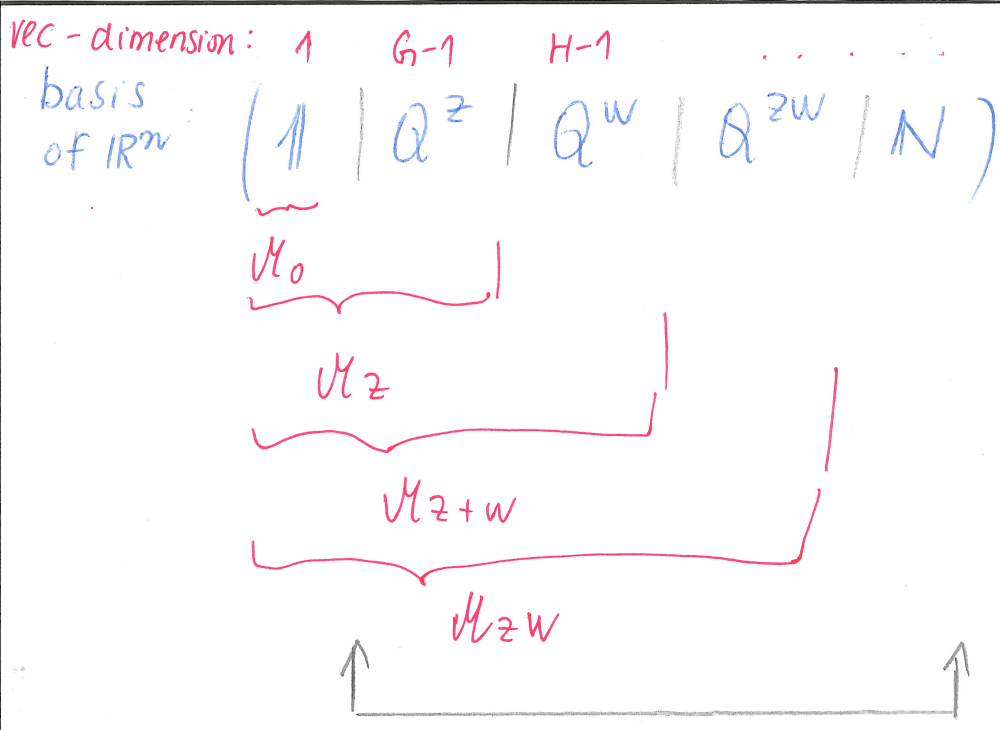 vec-dimension: 1 G-1 H-1 . . . . .
basis
of ℝⁿ: ( 𝟙 | Q^Z | Q^W | Q^ZW | N )
M₀
M_Z
M_Z+W
M_ZW